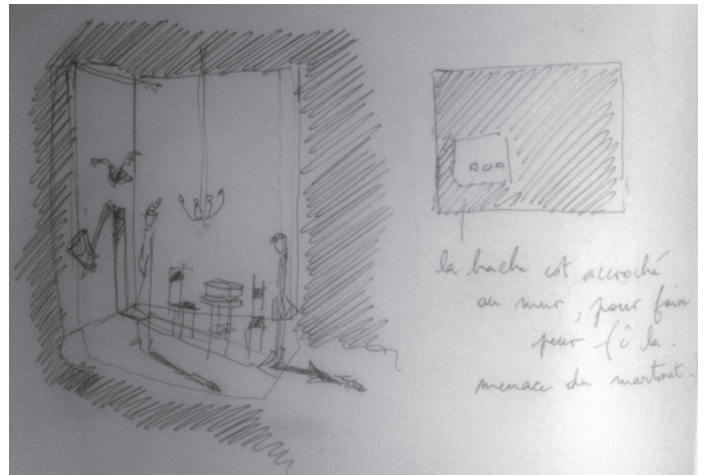 la hache est accroché
au mur, pour fair
peur (à la
menace du martinet.)